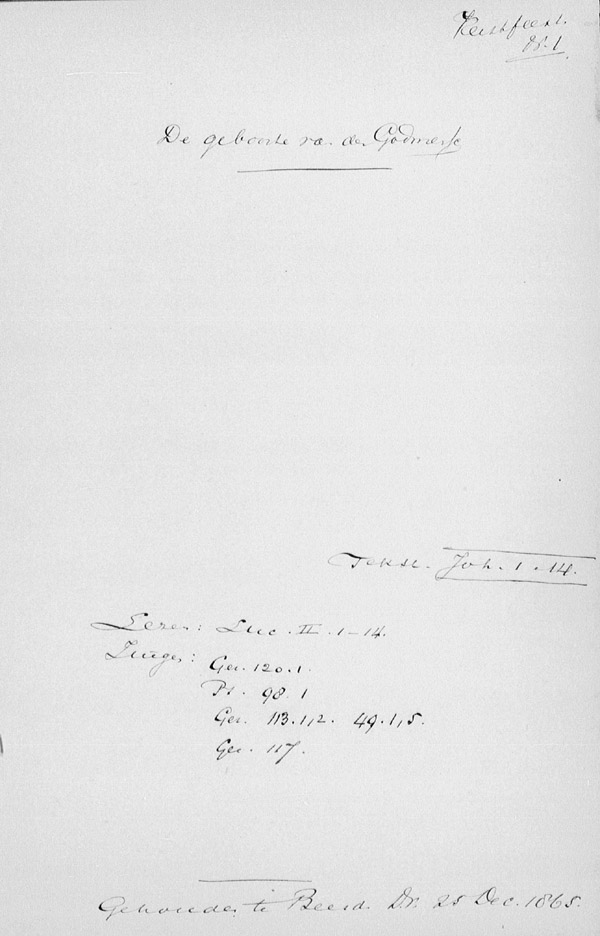 Kerstfeest.
N.1
De geboorte van den Godmensch
Tekst. Joh. 1.14.
Lezen: Luc. II. 1-14.
Zingen: Gez. 120.1.
Ps. 98.1
Gez. 113.1,2. 49.1,5.
Gez. 117.
Gehouden te Beesd. 25 Dec. 1865.